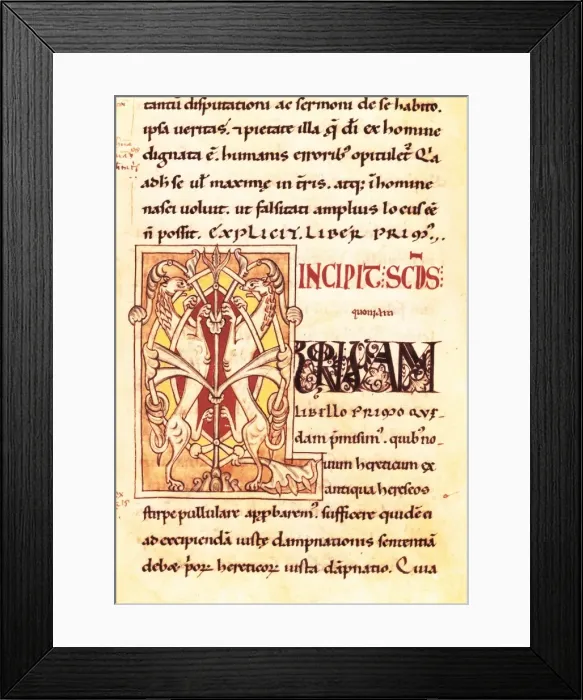 tantū disputationi ac sermoni de se habito.
ipsa ueritas, ⁊ pietate illa q̄ dī ex homine
dignata ē. humanis errorib' opitulet̄ Q'a
adh' se uł maxime in tr̄is. atq; ī homine
nasci uoluit. ut falsitati amplius locus eē
ñ possit. EXPLICIT. LIBER PRIM9.,.
INCIPIT: SCD̄S:
quoniam
QUONIAM
LIBELLO PRIMO QUE-
dam p̄misim'. quib' no-
uum hereticum ex
antiqua hereseos
stirpe pullulare app̱barem'. sufficere quidē ei
ad excipiendā iustę dampnationis sententiā
debæ p'or hereticor iusta dāpnatio. Quia